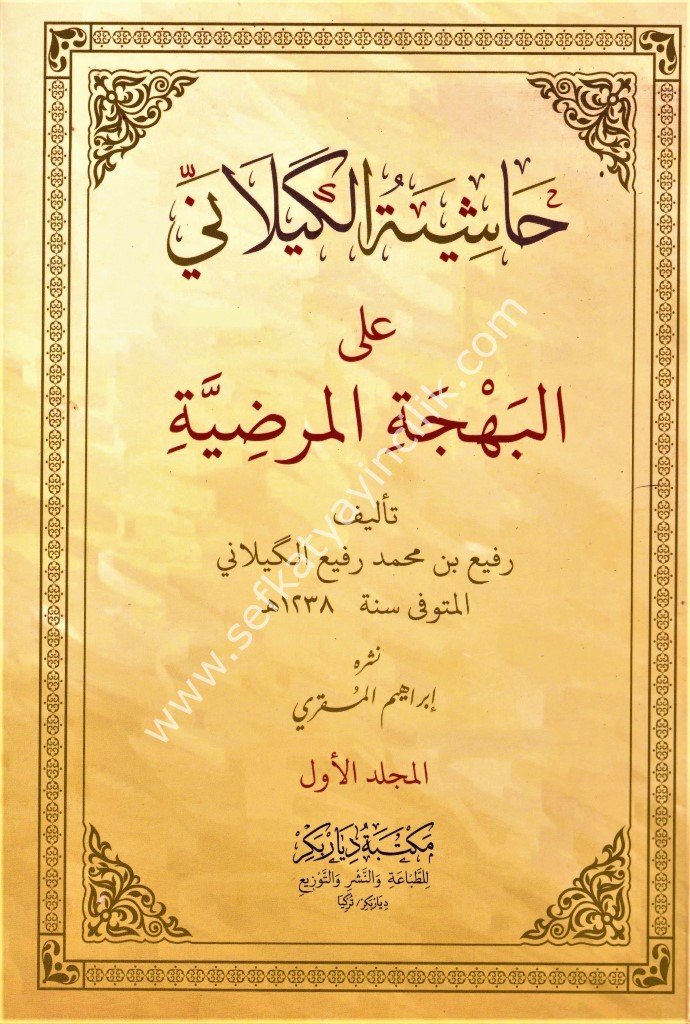 حَاشِيَةُ الگيلَانيِّ
على
البَهْجَةِ المرضِيَّةِ
تأليف
رفيع بن محمد رفيع الگيلاني
المتوفى سنة ١٢٣٨هـ
نشره
إبراهيم المقري
المجلد الأول
مَكْتَبَةُ دِيَارْبَكِرْ
لِلطِّبَاعَةِ وَالنَّشْرِ وَالتَّوْزِيعِ
دِيَارْبَكِرْ/تُرْكِيَا
www.sefkatyayincilik.com